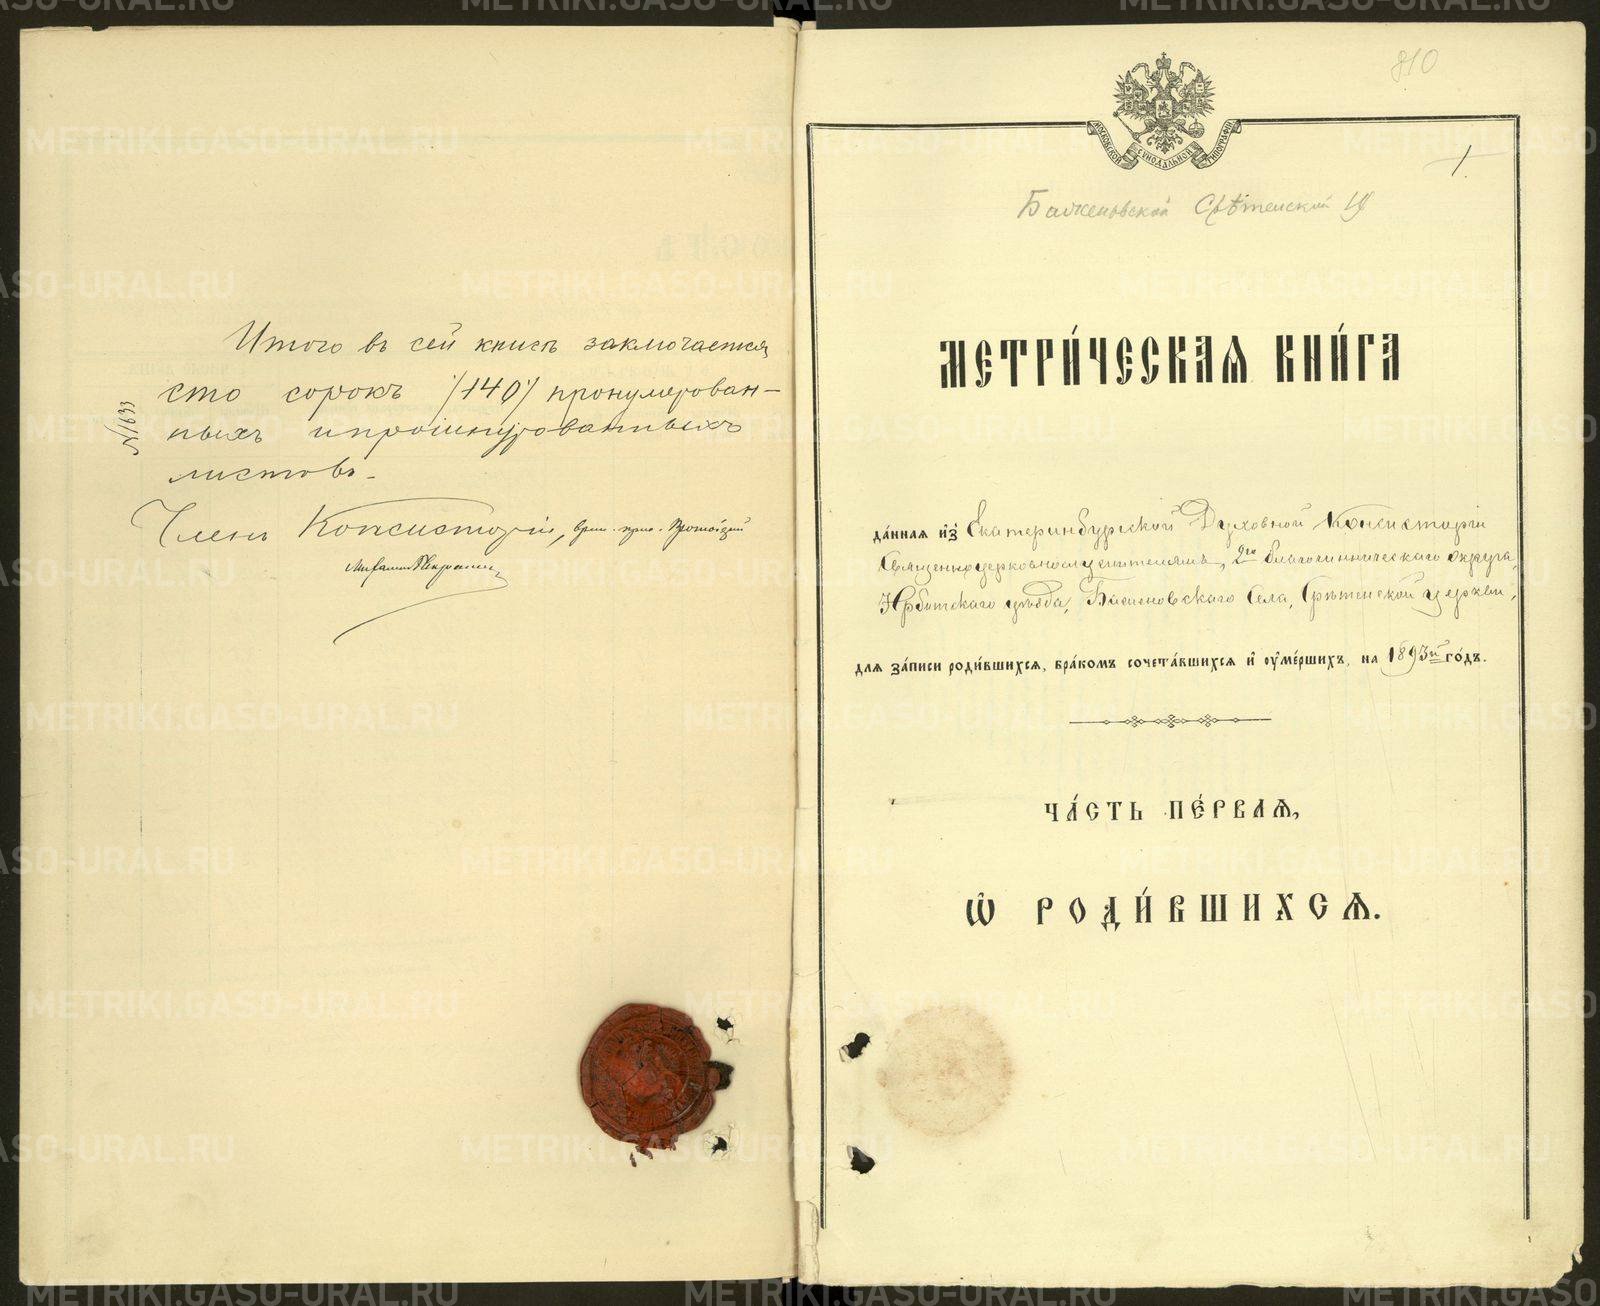 Итого въ сей книгѣ заключается
сто сорокъ /140/ пронумерован-
ныхъ и прошнурованныхъ
листовъ.
Членъ Консисторіи,
№ 1633
810
1
МОСКОВСКОЙ СѴНОДАЛЬНОЙ ТИПОГРАФІИ
Баженовской Срѣтенской ц
МЕТРИ́ЧЕСКАЯ КНИ́ГА
да́нная и҆з̾ Екатеринбургской Духовной Консисторіи
Священноцерковнослужителямъ, 2го благочинническаго округа,
Ирбитскаго уѣзда, Баженовскаго Села, Срѣтенской церкви,
для за́писи роди́вшихся, бра́комъ сочета́вшихся и҆ ѹ҆ме́ршихъ, на 1893й го́дъ.
ЧА́СТЬ ПЕ́РВАЯ,
Ѽ РОДИ́ВШИХСЯ.
METRIKI.GASO-URAL.RU